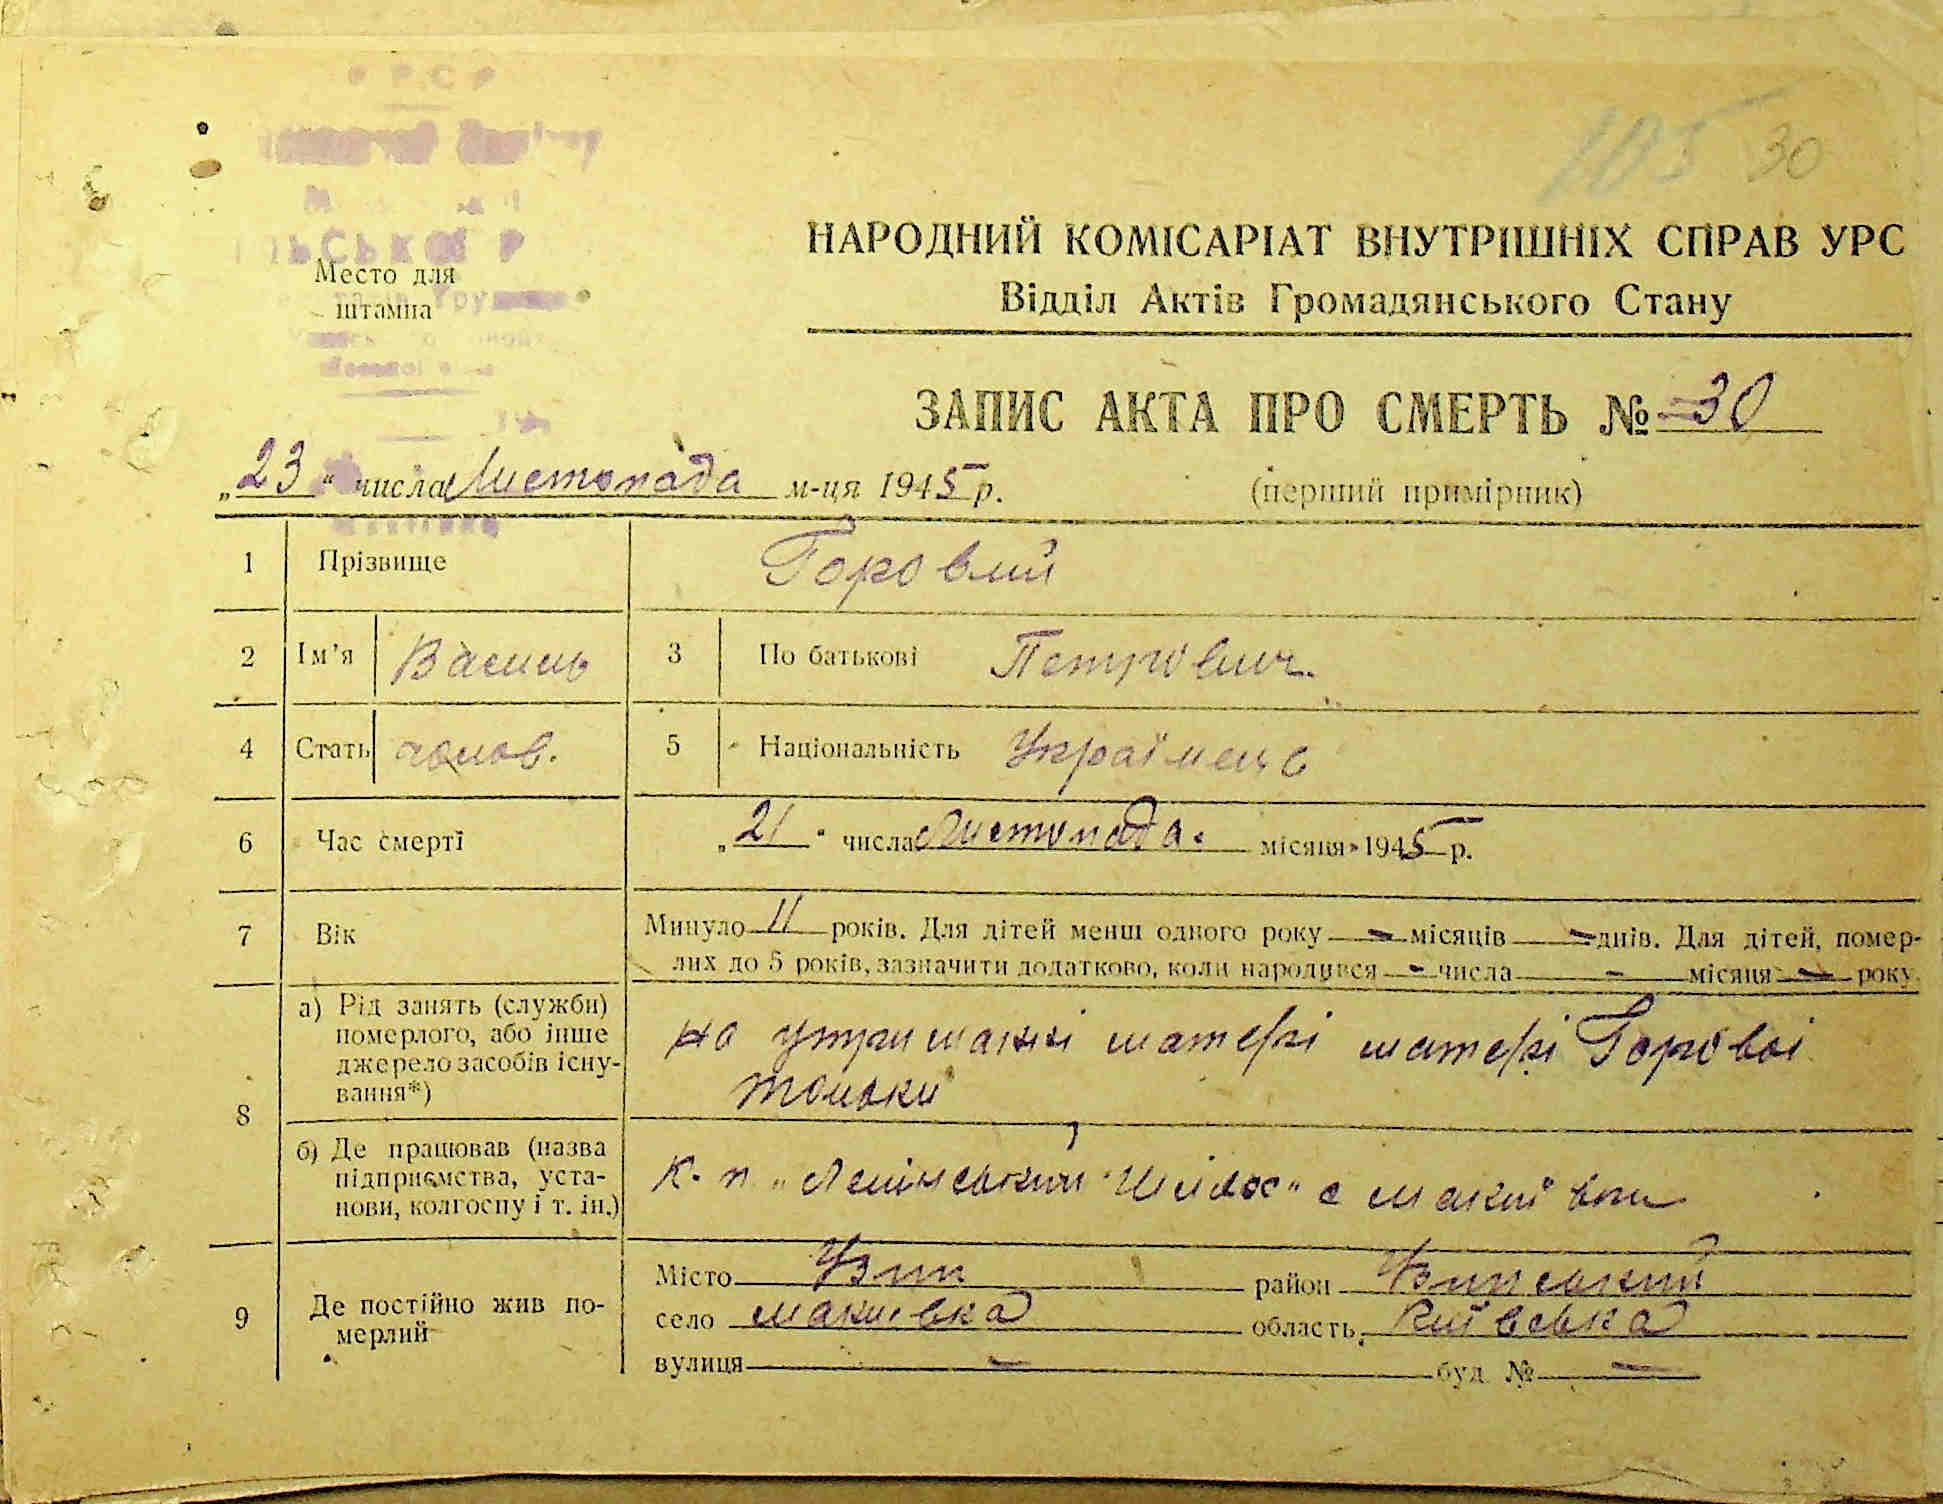 РСР
105 30
ЬСЬКОЇ Р
Место для
штампа
НАРОДНИЙ КОМІСАРІАТ ВНУТРІШНІХ СПРАВ УРС
Відділ Актів Громадянського Стану
ЗАПИС АКТА ПРО СМЕРТЬ № 30
„23" числа Листопада м-ця 1945 р.
(перший примірник)
1 Прізвище Горовий
2 Ім'я Василь 3 По батькові Петрович
4 Стать чолов. 5 Національність Українець
6 Час смерті „21" числа Листопада місяця 1945 р.
7 Вік Минуло 11 років. Для дітей менш одного року — місяців — днів. Для дітей, помер-
лих до 5 років, зазначити додатково, коли народився — числа — місяця — року.
8 а) Рід занять (служби)
померлого, або інше
джерело засобів існу-
вання*)
на утриманні матері матері Горової
б) Де працював (назва
підприємства, уста-
нови, колгоспу і т. ін.)
"Ленінський Шлях" с
9 Де постійно жив по-
мерлий
Місто Узин район Узинський
село Макиївка область Київська
вулиця — буд № —